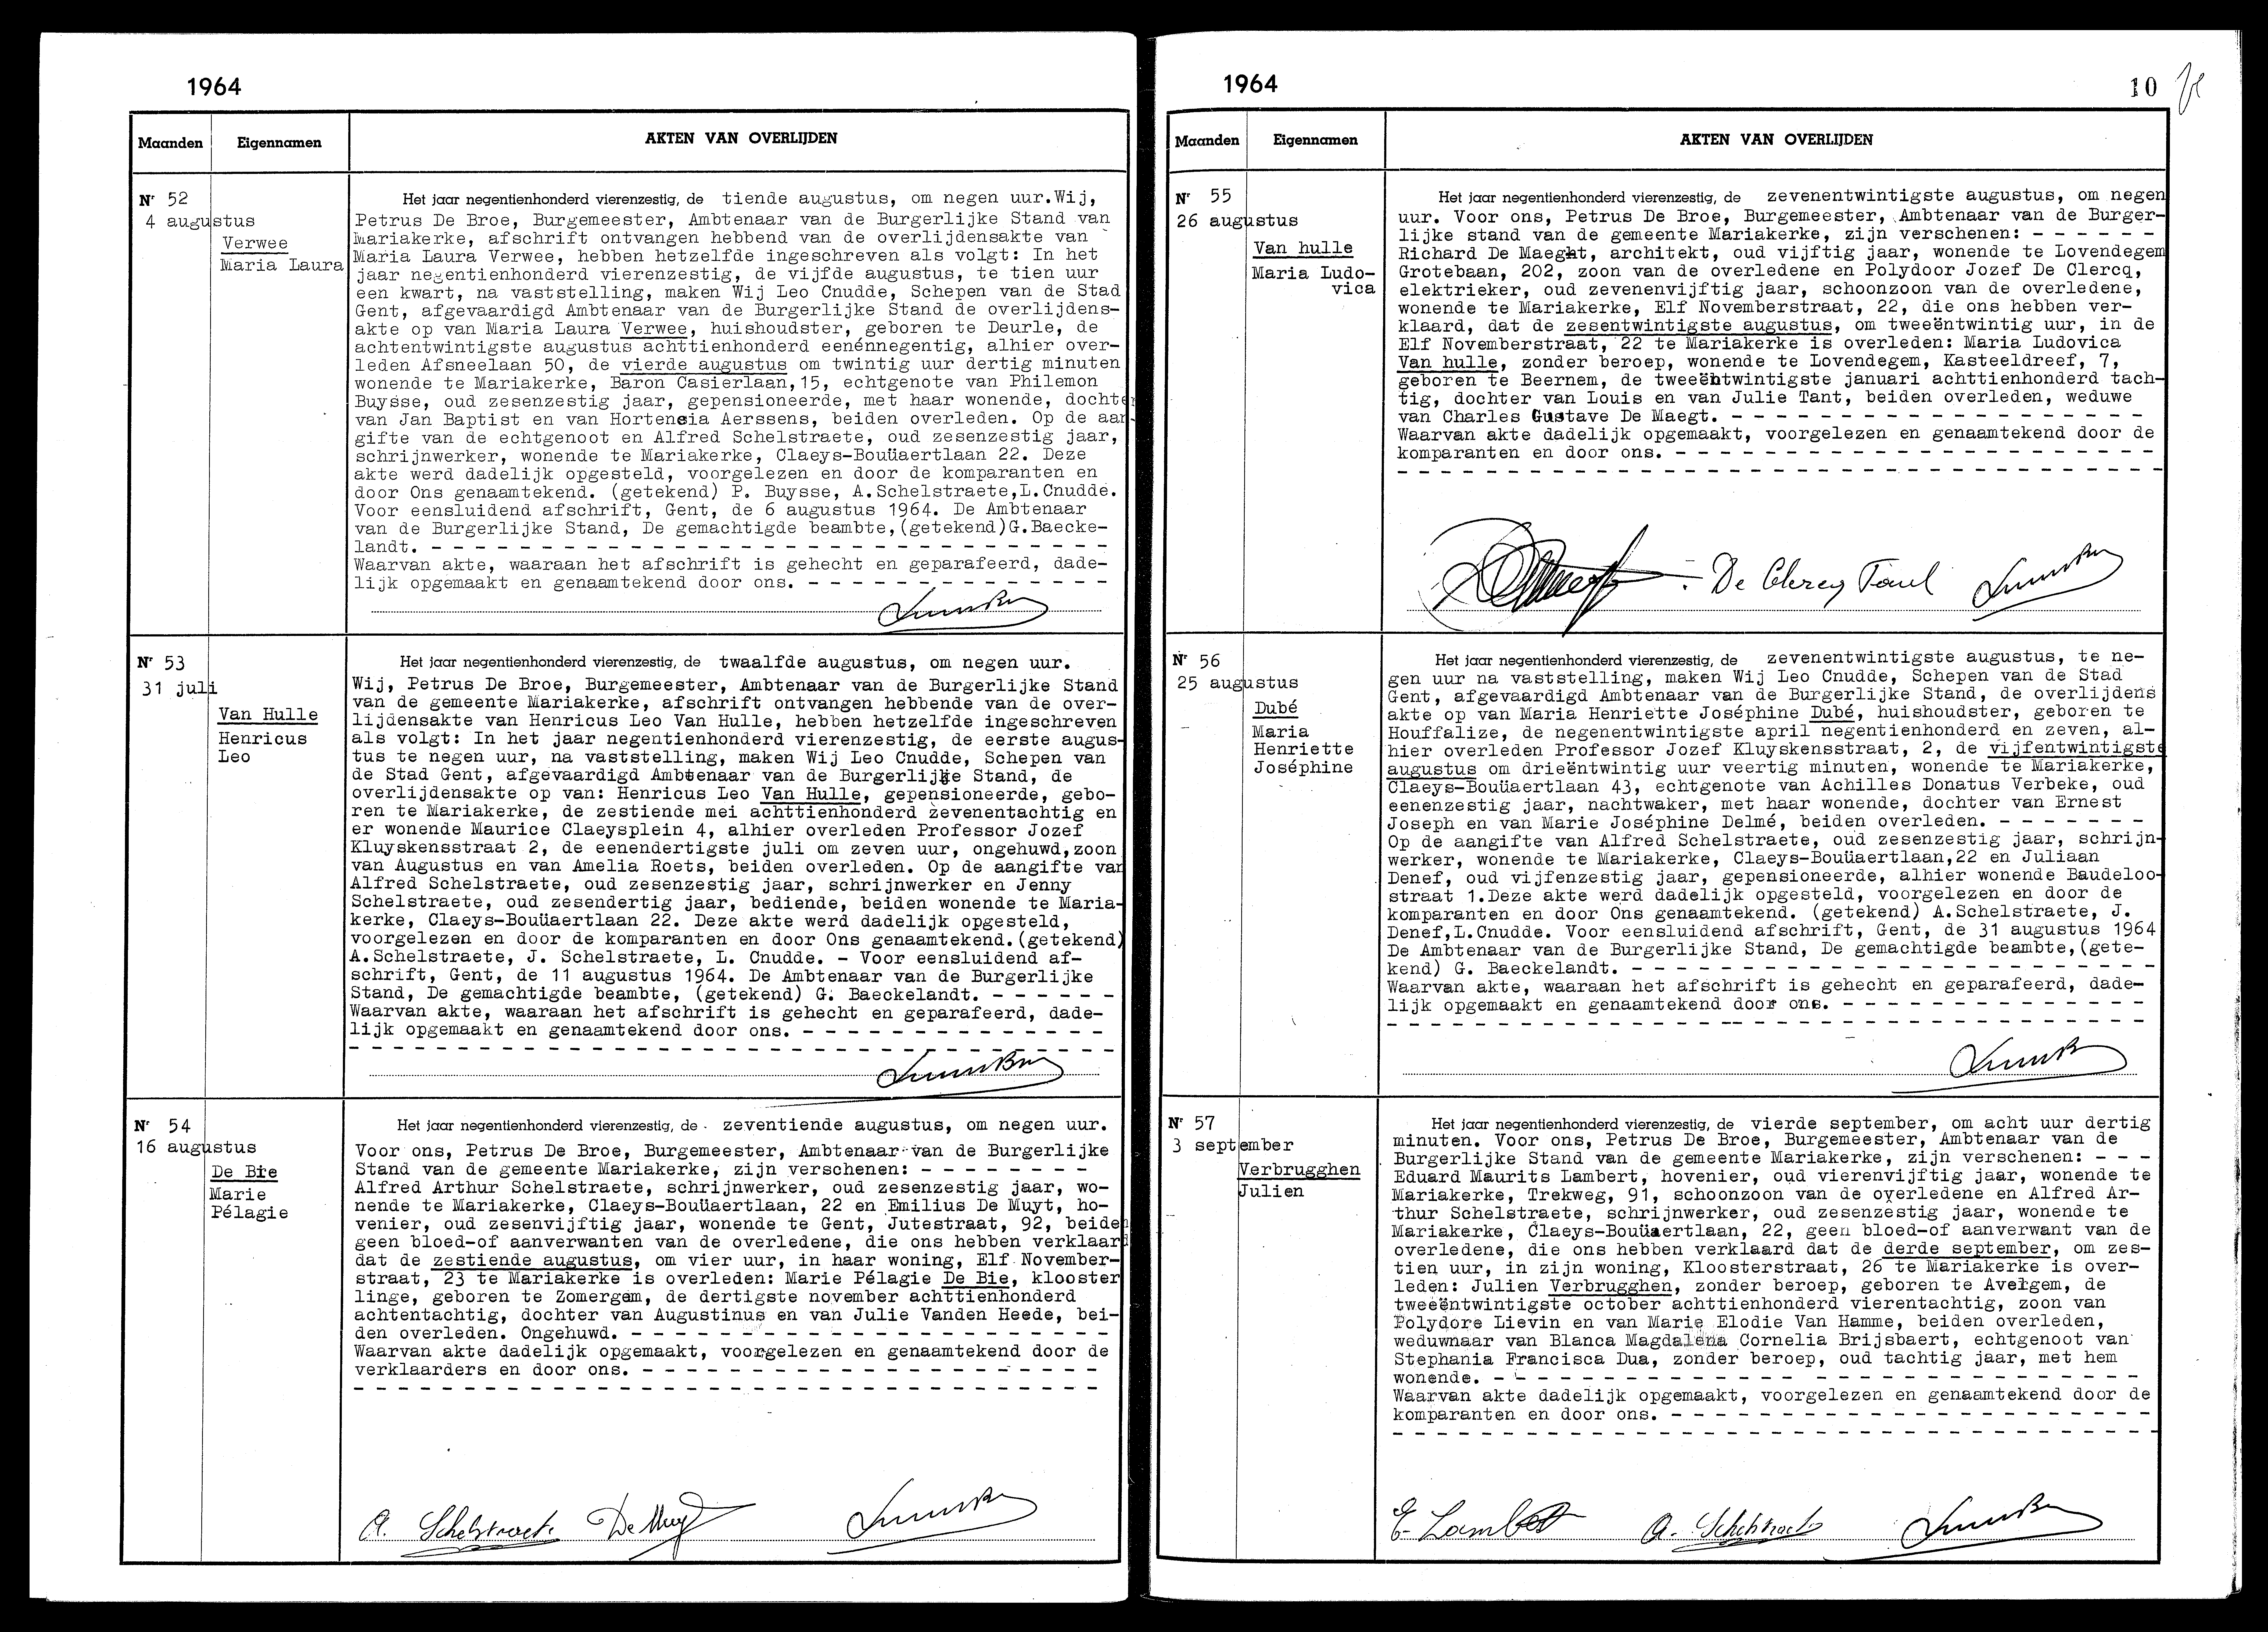 1964
Maanden Eigennamen AKTEN VAN OVERLIJDEN
Nr 52
4 augustus
Verwee
Maria Laura
Het jaar negentienhonderd vierenzestig, de tiende augustus, om negen uur.Wij,
Petrus De Broe, Burgemeester, Ambtenaar van de Burgerlijke Stand van
Mariakerke, afschrift ontvangen hebbend van de overlijdensakte van
Maria Laura Verwee, hebben hetzelfde ingeschreven als volgt: In het
jaar negentienhonderd vierenzestig, de vijfde augustus, te tien uur
een kwart, na vaststelling, maken Wij Leo Cnudde, Schepen van de Stad
Gent, afgevaardigd Ambtenaar van de Burgerlijke Stand de overlijdens-
akte op van Maria Laura Verwee, huishoudster, geboren te Deurle, de
achtentwintigste augustus achttienhonderd eenénnegentig, alhier over-
leden Afsneelaan 50, de vierde augustus om twintig uur dertig minuten
wonende te Mariakerke, Baron Casierlaan,15, echtgenote van Philemon
Buysse, oud zesenzestig jaar, gepensioneerde, met haar wonende, dochter
van Jan Baptist en van Hortensia Aerssens, beiden overleden. Op de aan-
gifte van de echtgenoot en Alfred Schelstraete, oud zesenzestig jaar,
schrijnwerker, wonende te Mariakerke, Claeys-Bouüaertlaan 22. Deze
akte werd dadelijk opgesteld, voorgelezen en door de komparanten en
door Ons genaamtekend. (getekend) P. Buysse, A.Schelstraete,L.Cnudde.
Voor eensluidend afschrift, Gent, de 6 augustus 1964. De Ambtenaar
van de Burgerlijke Stand, De gemachtigde beambte,(getekend)G.Baecke-
landt. - - - - - - - - - - - - - - - - - - - - - - - -
Waarvan akte, waaraan het afschrift is gehecht en geparafeerd, dade-
lijk opgemaakt en genaamtekend door ons. - - - - - - - - - - - - - -
Nr 53
31 juli
Van Hulle
Henricus
Leo
Het jaar negentienhonderd vierenzestig, de twaalfde augustus, om negen uur.
Wij, Petrus De Broe, Burgemeester, Ambtenaar van de Burgerlijke Stand
van de gemeente Mariakerke, afschrift ontvangen hebbende van de over-
lijdensakte van Henricus Leo Van Hulle, hebben hetzelfde ingeschreven
als volgt: In het jaar negentienhonderd vierenzestig, de eerste augus-
tus te negen uur, na vaststelling, maken Wij Leo Cnudde, Schepen van
de Stad Gent, afgevaardigd Ambtenaar van de Burgerlijke Stand, de
overlijdensakte op van: Henricus Leo Van Hulle, gepensioneerde, gebo-
ren te Mariakerke, de zestiende mei achttienhonderd zevenentachtig en
er wonende Maurice Claeysplein 4, alhier overleden Professor Jozef
Kluyskensstraat 2, de eenendertigste juli om zeven uur, ongehuwd,zoon
van Augustus en van Amelia Roets, beiden overleden. Op de aangifte van
Alfred Schelstraete, oud zesenzestig jaar, schrijnwerker en Jenny
Schelstraete, oud zesendertig jaar, bediende, beiden wonende te Maria-
kerke, Claeys-Bouüaertlaan 22. Deze akte werd dadelijk opgesteld,
voorgelezen en door de komparanten en door Ons genaamtekend.(getekend)
A.Schelstraete, J. Schelstraete, L. Cnudde. - Voor eensluidend af-
schrift, Gent, de 11 augustus 1964. De Ambtenaar van de Burgerlijke
Stand, De gemachtigde beambte, (getekend) G. Baeckelandt. - - - - - -
Waarvan akte, waaraan het afschrift is gehecht en geparafeerd, dade-
lijk opgemaakt en genaamtekend door ons. - - - - - - - - - - - - - -
Nr 54
16 augustus
De Bie
Marie
Pélagie
Het jaar negentienhonderd vierenzestig, de zeventiende augustus, om negen uur.
Voor ons, Petrus De Broe, Burgemeester, Ambtenaar van de Burgerlijke
Stand van de gemeente Mariakerke, zijn verschenen: - - - - - - - -
Alfred Arthur Schelstraete, schrijnwerker, oud zesenzestig jaar, wo-
nende te Mariakerke, Claeys-Bouüaertlaan, 22 en Emilius De Muyt, ho-
venier, oud zesenvijftig jaar, wonende te Gent, Jutestraat, 92, beiden
geen bloed-of aanverwanten van de overledene, die ons hebben verklaard
dat de zestiende augustus, om vier uur, in haar woning, Elf November-
straat, 23 te Mariakerke is overleden: Marie Pélagie De Bie, klooster
linge, geboren te Zomergem, de dertigste november achttienhonderd
achtentachtig, dochter van Augustinus en van Julie Vanden Heede, bei-
den overleden. Ongehuwd. - - - - - - - - - - - - - - - - -
Waarvan akte dadelijk opgemaakt, voorgelezen en genaamtekend door de
verklaarders en door ons. - - - - - - - - - - - - - - - - -
A. Schelstraete De Muyt
1964
10
Maanden Eigennamen AKTEN VAN OVERLIJDEN
Nr 55
26 augustus
Van hulle
Maria Ludo-
vica
Het jaar negentienhonderd vierenzestig, de zevenentwintigste augustus, om negen
uur. Voor ons, Petrus De Broe, Burgemeester, Ambtenaar van de Burger-
lijke stand van de gemeente Mariakerke, zijn verschenen: - - - - - -
Richard De Maegt, architekt, oud vijftig jaar, wonende te Lovendegem
Grotebaan, 202, zoon van de overledene en Polydoor Jozef De Clercq,
elektrieker, oud zevenenvijftig jaar, schoonzoon van de overledene,
wonende te Mariakerke, Elf Novemberstraat, 22, die ons hebben ver-
klaard, dat de zesentwintigste augustus, om tweeëntwintig uur, in de
Elf Novemberstraat, 22 te Mariakerke is overleden: Maria Ludovica
Van hulle, zonder beroep, wonende te Lovendegem, Kasteeldreef, 7,
geboren te Beernem, de tweeëntwintigste januari achttienhonderd tach-
tig, dochter van Louis en van Julie Tant, beiden overleden, weduwe
van Charles Gustave De Maegt. - - - - - - - - - - - - - - -
Waarvan akte dadelijk opgemaakt, voorgelezen en genaamtekend door de
komparanten en door ons. - - - - - - - - - - - - - - - - -
De Clercq
Nr 56
25 augustus
Dubé
Maria
Henriette
Joséphine
Het jaar negentienhonderd vierenzestig, de zevenentwintigste augustus, te ne-
gen uur na vaststelling, maken Wij Leo Cnudde, Schepen van de Stad
Gent, afgevaardigd Ambtenaar van de Burgerlijke Stand, de overlijdens
akte op van Maria Henriette Joséphine Dubé, huishoudster, geboren te
Houffalize, de negenentwintigste april negentienhonderd en zeven, al-
hier overleden Professor Jozef Kluyskensstraat, 2, de vijfentwintigste
augustus om drieëntwintig uur veertig minuten, wonende te Mariakerke,
Claeys-Bouüaertlaan 43, echtgenote van Achilles Donatus Verbeke, oud
eenenzestig jaar, nachtwaker, met haar wonende, dochter van Ernest
Joseph en van Marie Joséphine Delmé, beiden overleden. - - - - - - -
Op de aangifte van Alfred Schelstraete, oud zesenzestig jaar, schrijn-
werker, wonende te Mariakerke, Claeys-Bouüaertlaan,22 en Juliaan
Denef, oud vijfenzestig jaar, gepensioneerde, alhier wonende Baudeloo-
straat 1.Deze akte werd dadelijk opgesteld, voorgelezen en door de
komparanten en door Ons genaamtekend. (getekend) A.Schelstraete, J.
Denef,L.Cnudde. Voor eensluidend afschrift, Gent, de 31 augustus 1964
De Ambtenaar van de Burgerlijke Stand, De gemachtigde beambte,(gete-
kend) G. Baeckelandt. - - - - - - - - - - - - - - - - - -
Waarvan akte, waaraan het afschrift is gehecht en geparafeerd, dade-
lijk opgemaakt en genaamtekend door ons. - - - - - - - - - - - - - -
Nr 57
3 september
Verbrugghen
Julien
Het jaar negentienhonderd vierenzestig, de vierde september, om acht uur dertig
minuten. Voor ons, Petrus De Broe, Burgemeester, Ambtenaar van de
Burgerlijke Stand van de gemeente Mariakerke, zijn verschenen: - - -
Eduard Maurits Lambert, hovenier, oud vierenvijftig jaar, wonende te
Mariakerke, Trekweg, 91, schoonzoon van de overledene en Alfred Ar-
thur Schelstraete, schrijnwerker, oud zesenzestig jaar, wonende te
Mariakerke, Claeys-Bouüaertlaan, 22, geen bloed-of aanverwant van de
overledene, die ons hebben verklaard dat de derde september, om zes-
tien uur, in zijn woning, Kloosterstraat, 26 te Mariakerke is over-
leden: Julien Verbrugghen, zonder beroep, geboren te Avelgem, de
tweeëntwintigste october achttienhonderd vierentachtig, zoon van
Polydore Lievin en van Marie Elodie Van Hamme, beiden overleden,
weduwnaar van Blanca Magdalena Cornelia Brijsbaert, echtgenoot van
Stephania Francisca Dua, zonder beroep, oud tachtig jaar, met hem
wonende. - - - - - - - - - - - - - - - - - - - - - -
Waarvan akte dadelijk opgemaakt, voorgelezen en genaamtekend door de
komparanten en door ons. - - - - - - - - - - - - - - - - -
E. Lambert A. Schelstraete